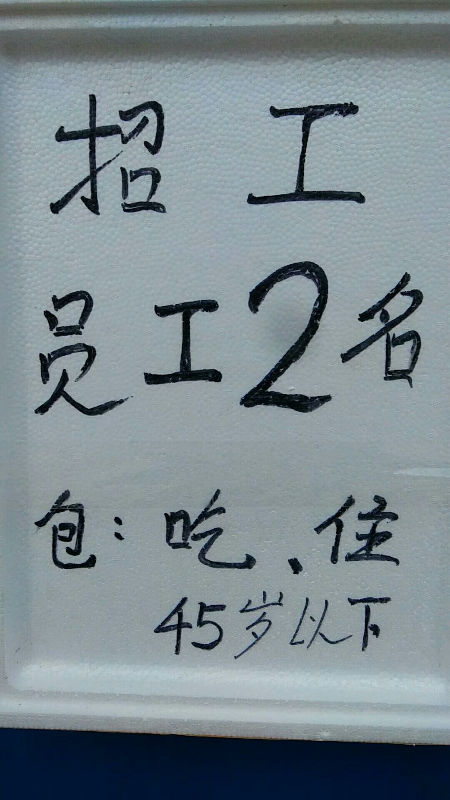 招工
员工2名
包：吃、住
45岁以下